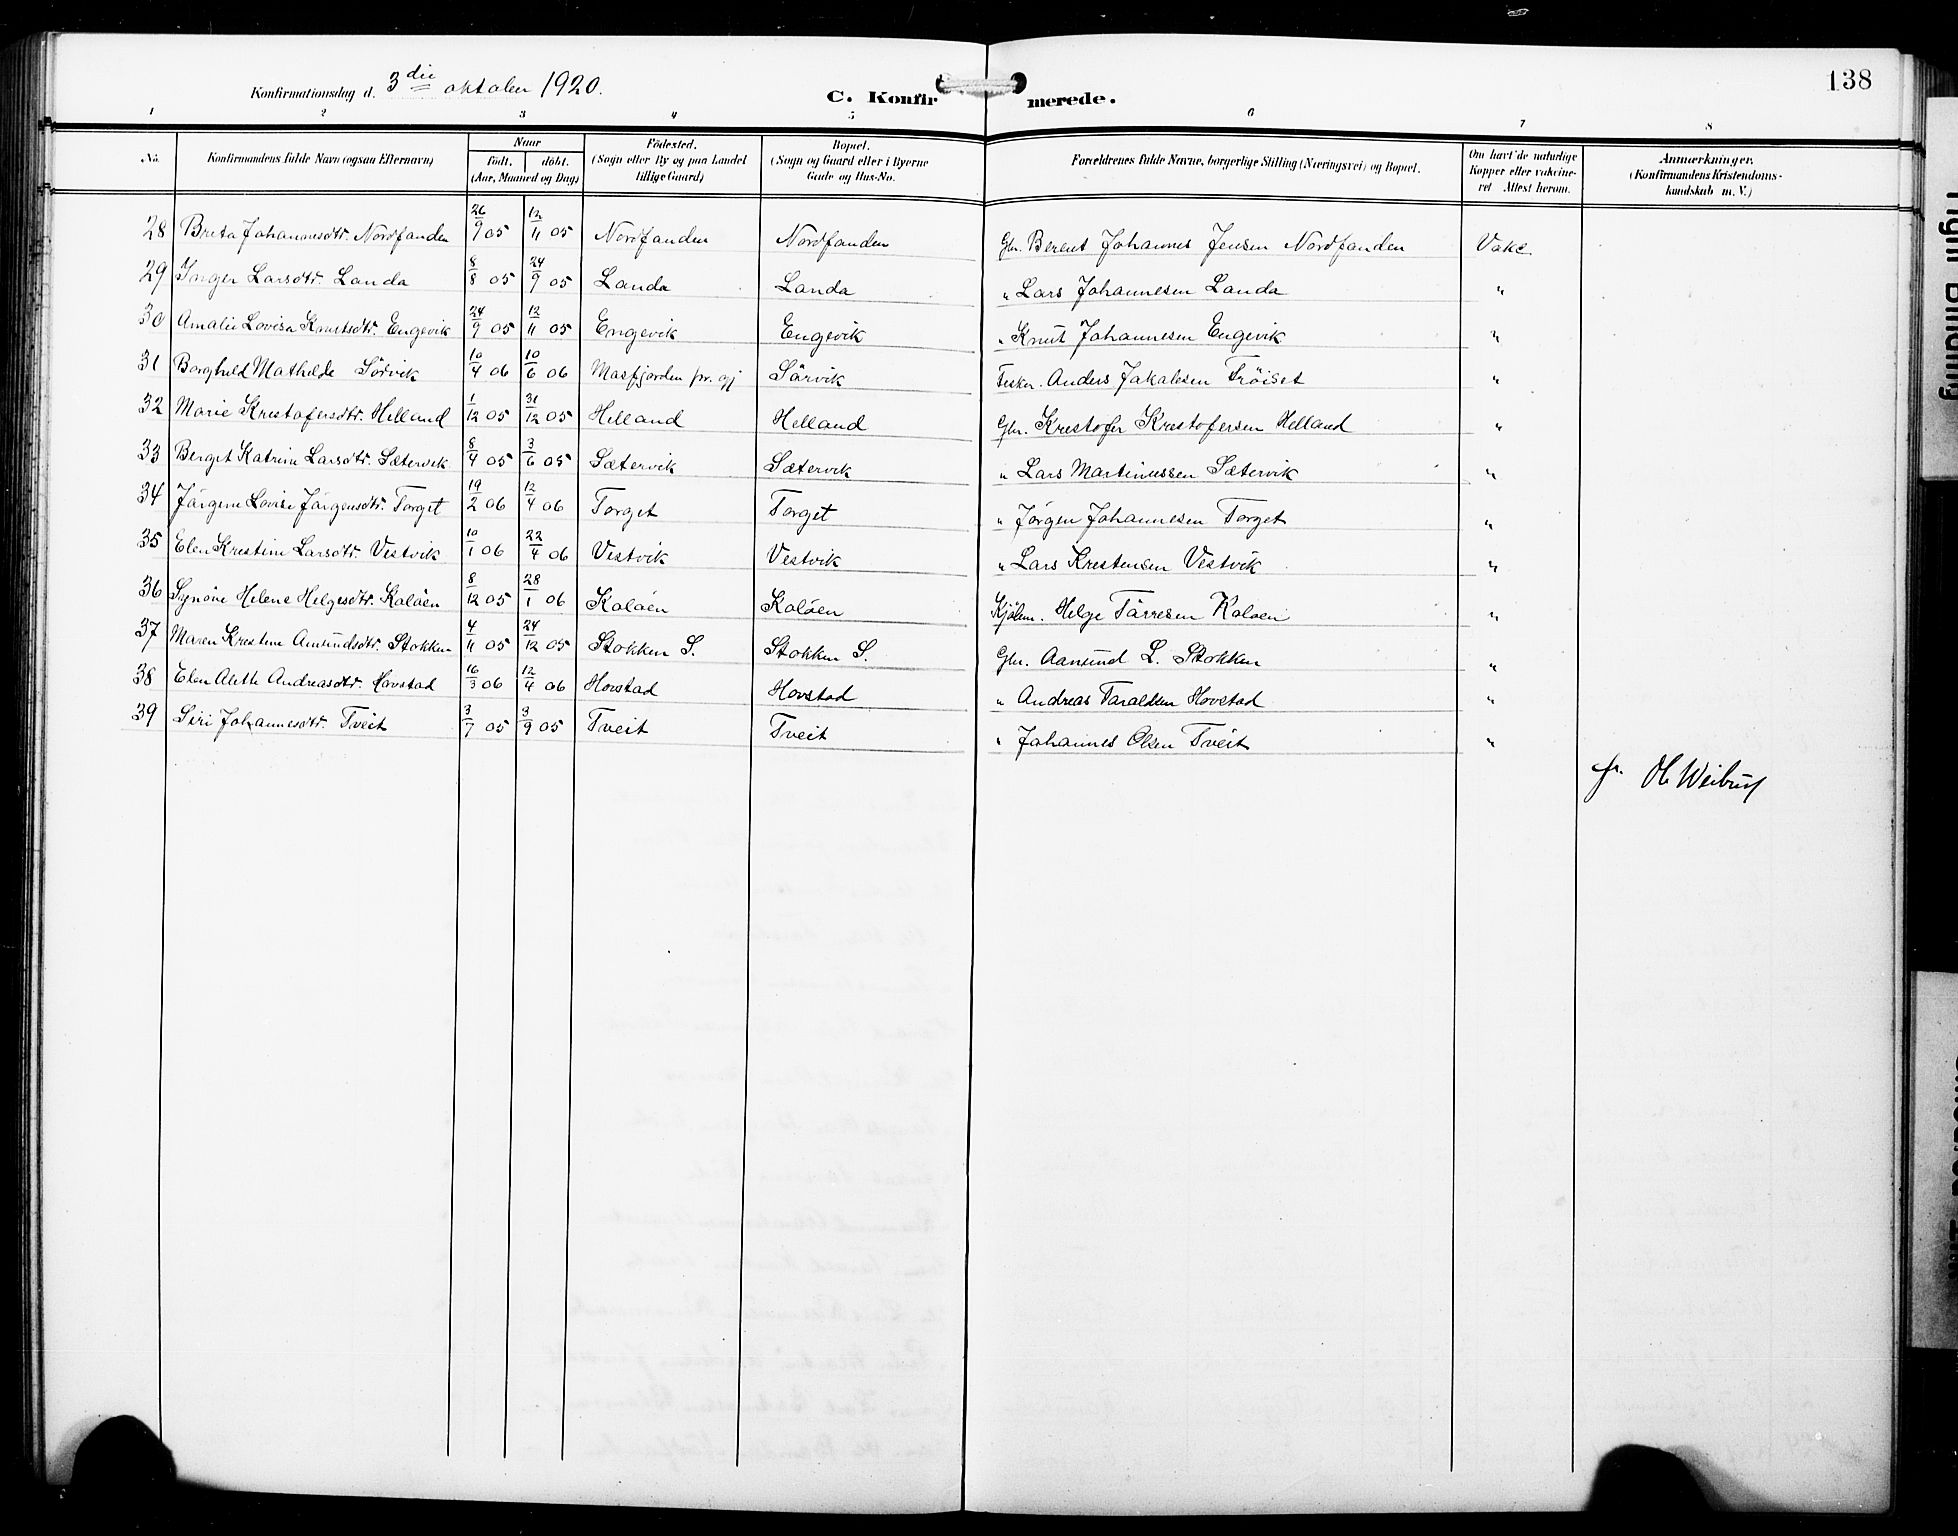 138
Konfirmationsdag d. 3die oktober 1920.
C. Konfirmerede.
1 2 3 4 5 6 7 8
No. Konfirmandens fulde Navn (ogsaa Efternavn) Naar født. døbt. (Aar, Maaned og Dag) Fødested. (Sogn eller By og paa Landet tillige Gaard) Bopæl. (Sogn og Gaard eller i Byerne Gade og Hus-No. Forældrenes fulde Navne, borgerlige Stilling (Næringsvei) og Bopæl. Om havt de naturlige Kopper eller vakcineret Attest herom. Anmærkninger. (Konfirmandens Kristendomskundskab m. V.)
28 Breta Johannesdtr. Nordfanden 26/9 05 12/11 05 Nordfanden Nordfanden Gbr. Berent Johannes Jensen Nordfanden Vakc
29 Inger Larsdtr. Landa 8/8 05 24/9 05 Landa Landa " Lars Johannesen Landa "
30 Amalie Lovisa Knutsdtr. Engevik 24/9 05 12/11 05 Engevik Engevik " Knut Johannesen Engevik "
31 Borghild Mathilde Sörvik 10/4 06 10/6 06 Masfjorden pr. gj Sörvik Fisker. Anders Jakobsen Tröiset "
32 Marie Kristofersdtr. Helland 1/12 05 31/12 05 Helland Helland Gbr. Kristofer Kristofersen Helland "
33 Berget Katrine Larsdtr. Sætervik 8/4 05 3/6 05 Sætervik Sætervik " Lars Martinussen Sætervik "
34 Jörgine Lovise Jörgensdtr. Torget 19/2 06 12/4 06 Torget Torget " Jörgen Johannesen Torget "
35 Elen Krestine Larsdtr. Vestvik 10/1 06 22/4 06 Vestvik Vestvik " Lars Krestensen Vestvik "
36 Synöve Helene Helgesdtr. Kolöen 8/12 05 28/1 06 Kolöen Kolöen Kjölem. Helge Törresen Kolöen "
37 Maren Krestine Amundsdtr. Stokken 4/11 05 24/12 05 Stokken S. Stokken S. Gbr. Aamund L. Stokken "
38 Elen Aleth Andreasdtr. Hovstad 16/3 06 12/4 06 Hovstad Hovstad " Andreas Taraldsen Hovstad "
39 Siri Johannesdtr. Tveit 3/7 05 3/9 05 Tveit Tveit " Johannes Olsen Tveit "
Tight Binding